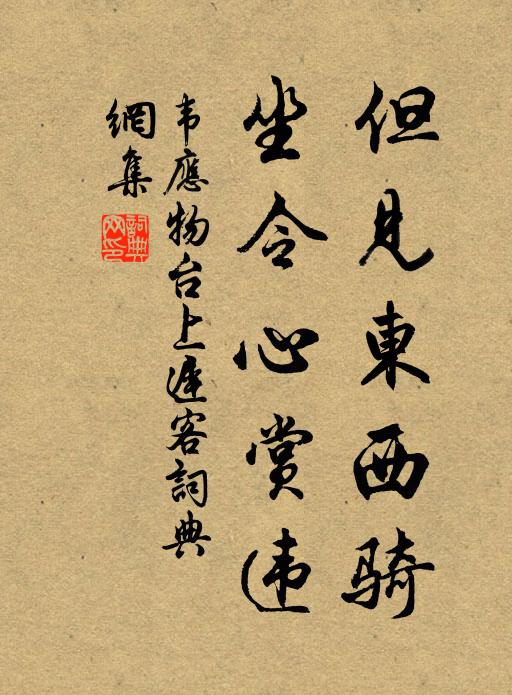 但见東西骑
坐令心赏违
韦應物台上遲客詞典
網集
詞典网印